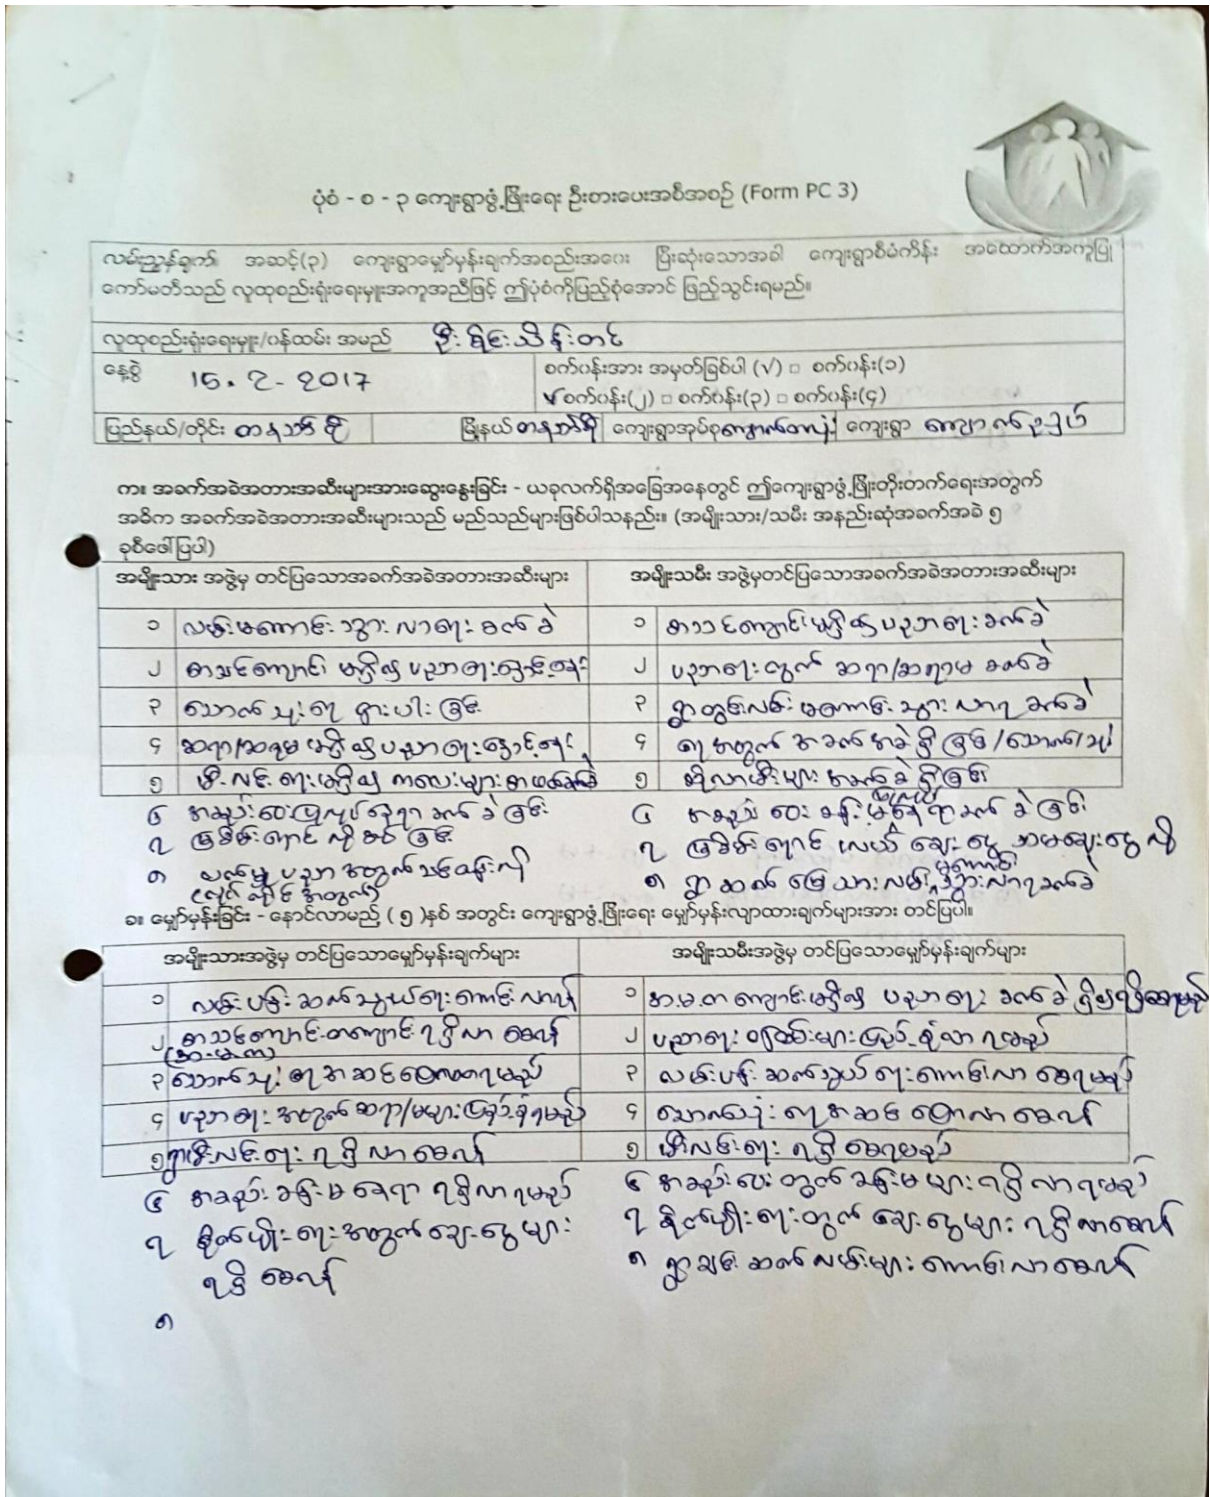 ပုံစံ - စ - ၃ ကျေးရွာဖွံ့ဖြိုးရေး ဦးစားပေးအစီအစဉ် (Form PC 3)
လမ်းညွှန်ချက်၊ အဆင့်(၃) ကျေးရွာမျှော်မှန်းချက်အစည်းအဝေး ပြီးဆုံးသောအခါ ကျေးရွာစီမံကိန်း အထောက်အကူပြု
ကော်မတီသည် လူထုစည်းရုံးရေးမှူးအကူအညီဖြင့် ဤပုံစံကိုပြည့်စုံအောင် ဖြည့်သွင်းရမည်။
လူထုစည်းရုံးရေးမှူး/ဝန်ထမ်း အမည် ဦးစိုင်းသိန်းတင်
နေ့စွဲ 15.2-2017 စက်ဝန်းအား အမှတ်ခြစ်ပါ (√) □ စက်ဝန်း(၁)
√ စက်ဝန်း(၂) □ စက်ဝန်း(၃) □ စက်ဝန်း(၄)
ပြည်နယ်/တိုင်း တနင်္သာရီ မြို့နယ် တနင်္သာရီ ကျေးရွာအုပ်စု ကျေးရွာ
က။ အခက်အခဲအတားအဆီးများအားဆွေးနွေးခြင်း - ယခုလက်ရှိအခြေအနေတွင် ဤကျေးရွာဖွံ့ဖြိုးတိုးတက်ရေးအတွက်
အဓိက အခက်အခဲအတားအဆီးများသည် မည်သည်များဖြစ်ပါသနည်း။ (အမျိုးသား/သမီး အနည်းဆုံးအခက်အခဲ ၅
ခုစီဖေါ်ပြပါ)
အမျိုးသား အဖွဲ့မှ တင်ပြသောအခက်အခဲအတားအဆီးများ အမျိုးသမီး အဖွဲ့မှတင်ပြသောအခက်အခဲအတားအဆီးများ
၁ လမ်းမကောင်း သွားလာရေးခက်ခဲ ၁ စာသင်ကျောင်းမရှိ၍ ပညာရေးခက်ခဲ
၂ စာသင်ကျောင်း မရှိ၍ ပညာရေး ၂ ပညာရေးတွက် ဆရာ/ဆရာမ ခက်ခဲ
၃ သောက်သုံးရေ ရှားပါးခြင်း ၃ ရွာတွင်းလမ်း မကောင်း သွားလာရခက်ခဲ
၄ ဆရာ/ဆရာမ မရှိ၍ ပညာရေး ၄ ရေအတွက် အခက်အခဲရှိခြင်း/သောက်/သုံး
၅ မီးလင်းရေးမရှိ၍ ကလေးများ ၅ အခက်ခဲရှိခြင်း
၆ အစည်းဝေးပြုလုပ်နေရာ ခက်ခဲခြင်း ၆ အစည်းဝေးခန်းမ မရှိ နေရာခက်ခဲခြင်း
၇ ခြံစိမ်းရောင် လိုအပ်ခြင်း ၇ ခြံစိမ်းရောင် လယ် ချေးငွေ သမချေးငွေလို
၈ ပညာအတွက်သင်တန်းလို ၈ ရွာဆက်မြေသားလမ်း မကောင်း သွားလာရခက်ခဲ
ခ။ မျှော်မှန်းခြင်း - နောင်လာမည် ( ၅ )နှစ် အတွင်း ကျေးရွာဖွံ့ဖြိုးရေး မျှော်မှန်းလျာထားချက်များအား တင်ပြပါ။
အမျိုးသားအဖွဲ့မှ တင်ပြသောမျှော်မှန်းချက်များ အမျိုးသမီးအဖွဲ့မှ တင်ပြသောမျှော်မှန်းချက်များ
၁ လမ်းပန်းဆက်သွယ်ရေးကောင်းလာမည် ၁ အ.မ.က ကျောင်းမရှိ၍ ပညာရေး ခက်ခဲ
၂ စာသင်ကျောင်းတကျောင်းရရှိလာစေမည် ၂ ပညာရေး ဝန်ထမ်းများပြည့်စုံလာရမည်
(အ.မ.က)
၃ သောက်သုံးရေအဆင်ပြေလာရမည် ၃ လမ်းပန်းဆက်သွယ်ရေးကောင်းလာစေရမည်
၄ ပညာရေးအတွက်ဆရာ/မများပြည့်စုံရမည် ၄ သောက်သုံးရေအဆင်ပြေလာစေမည်
၅ ရွာမီးလင်းရေး ရရှိလာစေမည် ၅ မီးလင်းရေး ရရှိစေရမည်
၆ အစည်းခန်းမနေရာ ရရှိလာရမည် ၆ အစည်းဝေးတွက်ခန်းမများ ရရှိလာရမည်
၇ စိုက်ပျိုးရေးအတွက်ချေးငွေများ ၇ စိုက်ပျိုးရေးတွက် ချေးငွေများ ရရှိလာစေမည်
ရရှိစေမည် ၈ ရွာချင်းဆက်လမ်းများကောင်းလာစေမည်
၈